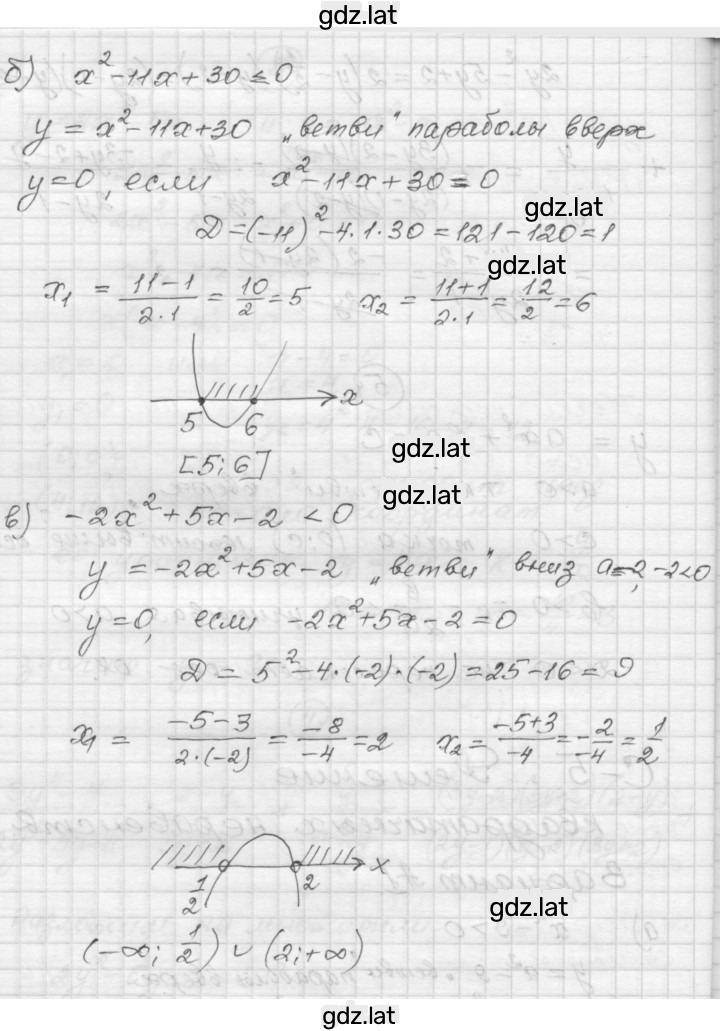 gdz.lat
б) x²-11x+30≤0
y = x²-11x+30 „ветви" параболы вверх
y=0, если x²-11x+30=0
gdz.lat
D=(-11)²-4·1·30=121-120=1
gdz.lat
x₁ = (11-1)/(2·1) = 10/2 = 5 x₂ = (11+1)/(2·1) = 12/2 = 6
x
5 6
gdz.lat
[5; 6]
gdz.lat
в) -2x²+5x-2 <0
y = -2x²+5x-2 „ветви" вниз a=-2, -2<0
y=0, если -2x²+5x-2=0
D = 5²-4·(-2)·(-2)=25-16=9
x₁ = (-5-3)/(2·(-2)) = -8/-4 = 2 x₂ = (-5+3)/-4 = -2/-4 = 1/2
x
1/2 2
gdz.lat
(-∞; 1/2) ∪ (2; +∞)
gdz.lat